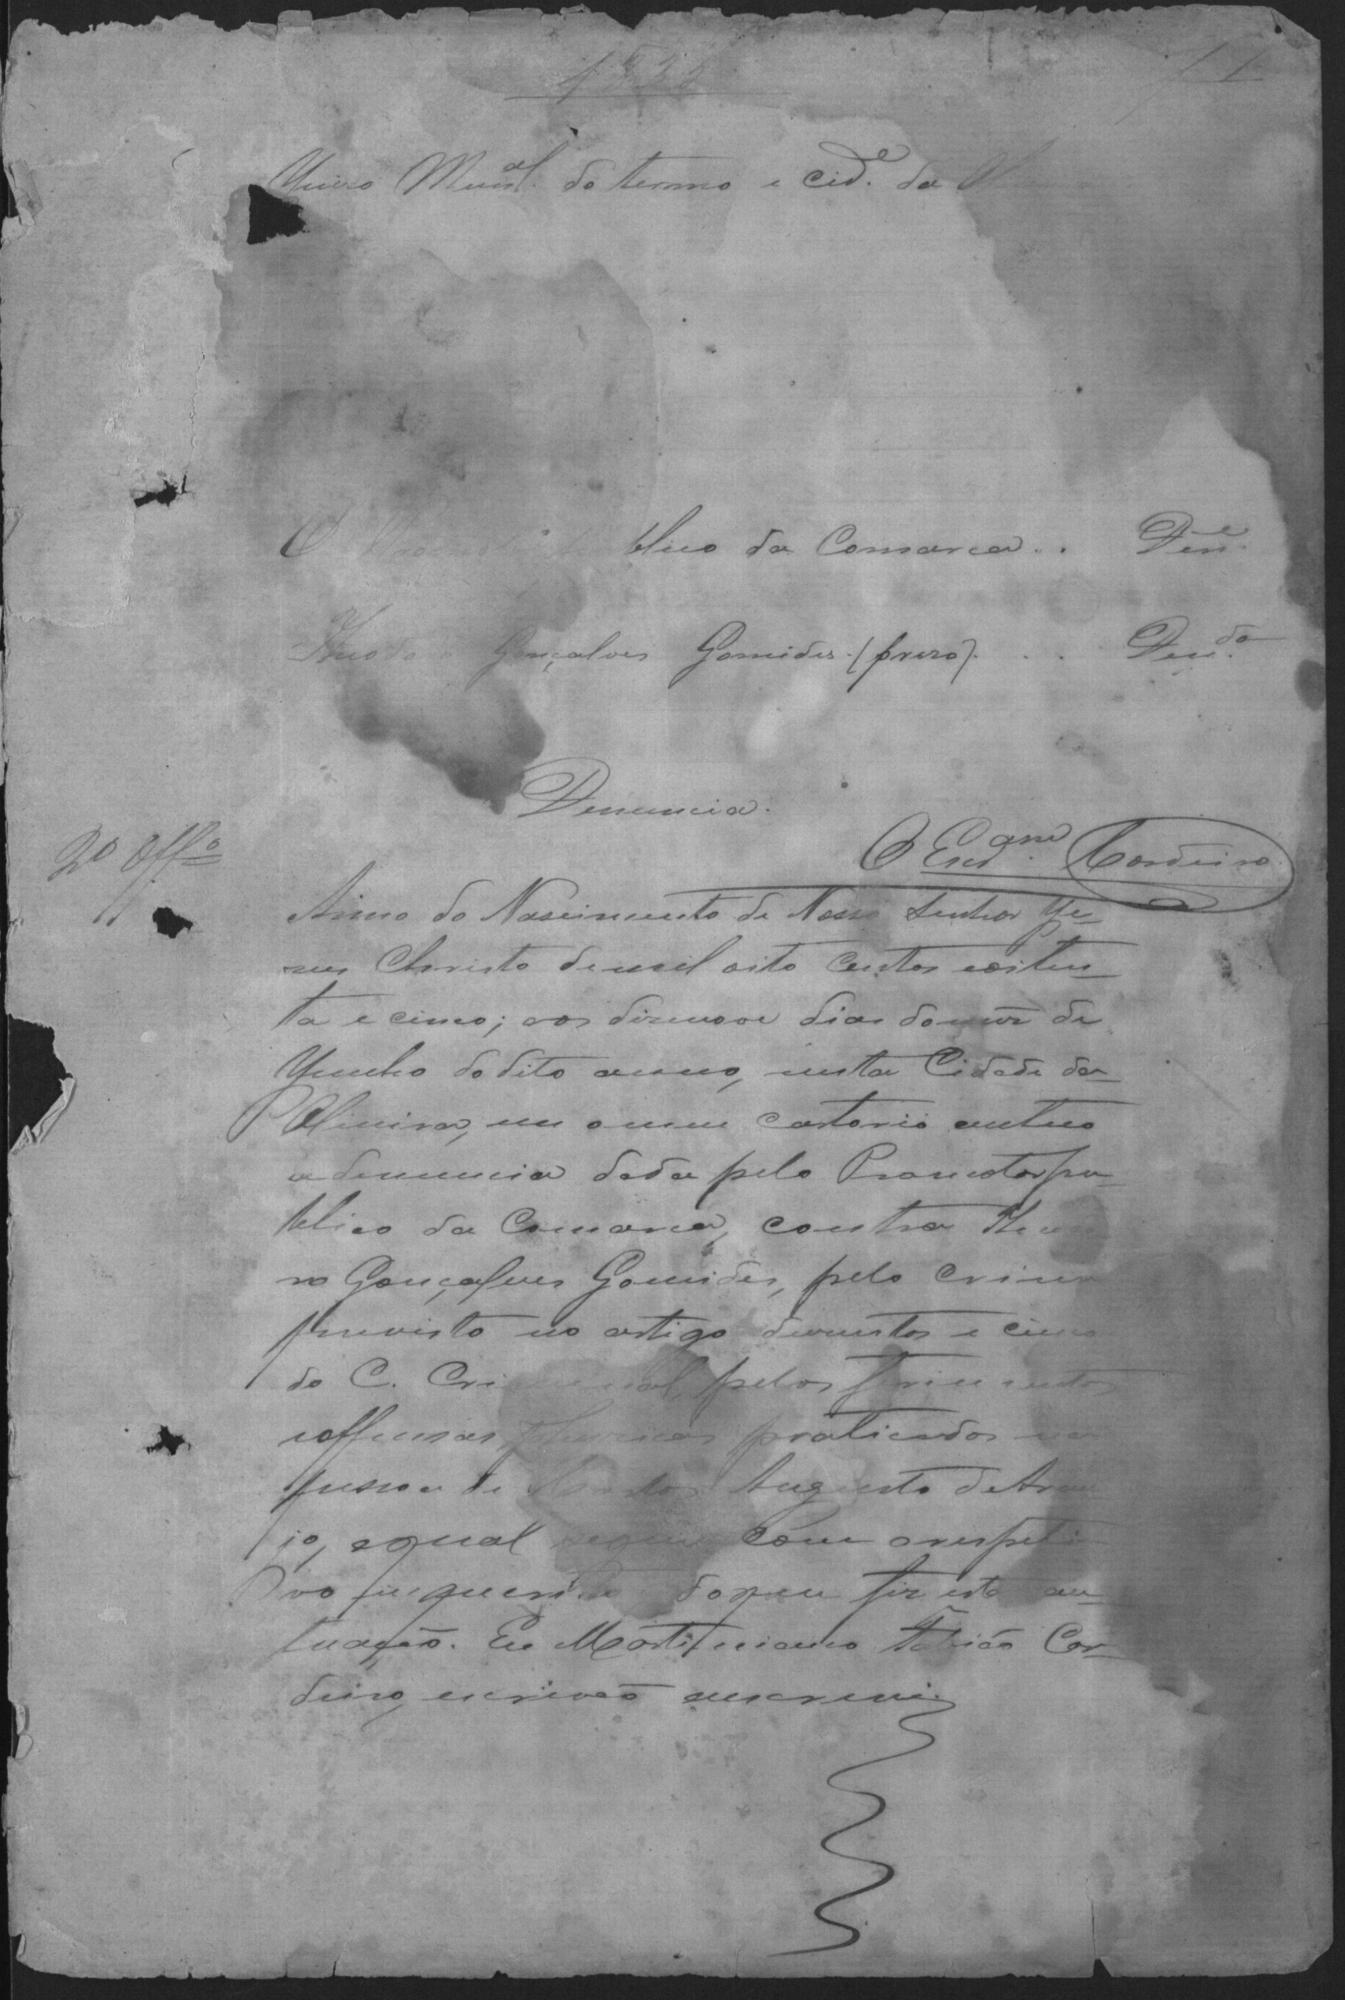 1885
Juizo Mun.al do termo e cid.e da
O blico da Comarca . . Den.e
Gonçalves Gomides (prezo) . . . Den.do
Denuncia.
2º Off.o
O Escr.am Cordeiro
Anno do Nascimento de Nosso Senhor Je-
sus Christo de mil oito centos e oiten-
ta e cinco; aos dizenove dias do mêz de
Junho do dito anno, nesta Cidade da
Oliveira, em o meu cartorio autuo
a denuncia dada pelo Promotor pu-
blico da Comarca, contra
ro Gonçalves Gomides, pelo crime
previsto no artigo duzentos e cinco
do C. Criminal, pelos ferimentos
e offensas phisicas praticados na
pessoa de Augusto de Arau-
jo, a qual segue com o respeti-
vo inquerito, do que fiz esta au-
tuação. Eu Martiniano Cor-
deiro, escrivão escrevi.